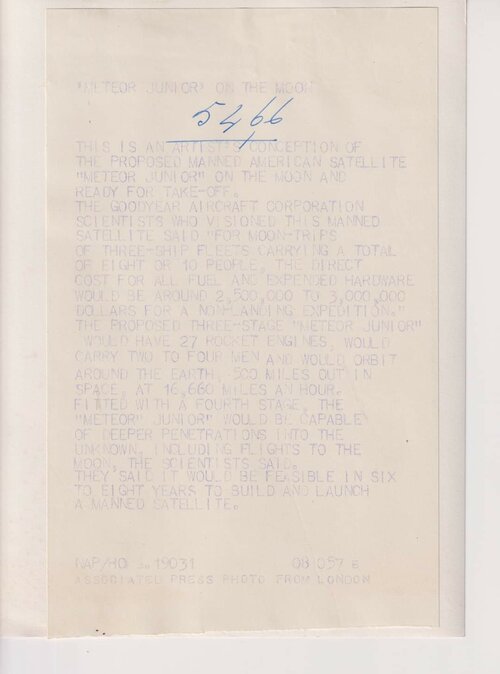 "METEOR JUNIOR" ON THE MOON
5466
THIS IS AN ARTIST'S CONCEPTION OF
THE PROPOSED MANNED AMERICAN SATELLITE
"METEOR JUNIOR" ON THE MOON AND
READY FOR TAKE-OFF.
THE GOODYEAR AIRCRAFT CORPORATION
SCIENTISTS WHO VISIONED THIS MANNED
SATELLITE SAID "FOR MOON-TRIPS
OF THREE-SHIP FLEETS CARRYING A TOTAL
OF EIGHT OR 10 PEOPLE, THE DIRECT
COST FOR ALL FUEL AND EXPENDED HARDWARE
WOULD BE AROUND 2,500,000 TO 3,000,000
DOLLARS FOR A NONLANDING EXPEDITION."
THE PROPOSED THREE-STAGE "METEOR JUNIOR"
WOULD HAVE 27 ROCKET ENGINES, WOULD
CARRY TWO TO FOUR MEN AND WOULD ORBIT
AROUND THE EARTH, 500 MILES OUT IN
SPACE, AT 16,660 MILES AN HOUR.
FITTED WITH A FOURTH STAGE, THE
"METEOR" JUNIOR" WOULD BE CAPABLE
OF DEEPER PENETRATIONS INTO THE
UNKNOWN, INCLUDING FLIGHTS TO THE
MOON, THE SCIENTISTS SAID.
THEY SAID IT WOULD BE FEASIBLE IN SIX
TO EIGHT YEARS TO BUILD AND LAUNCH
A MANNED SATELLITE.
19031
ASSOCIATED PRESS PHOTO FROM LONDON